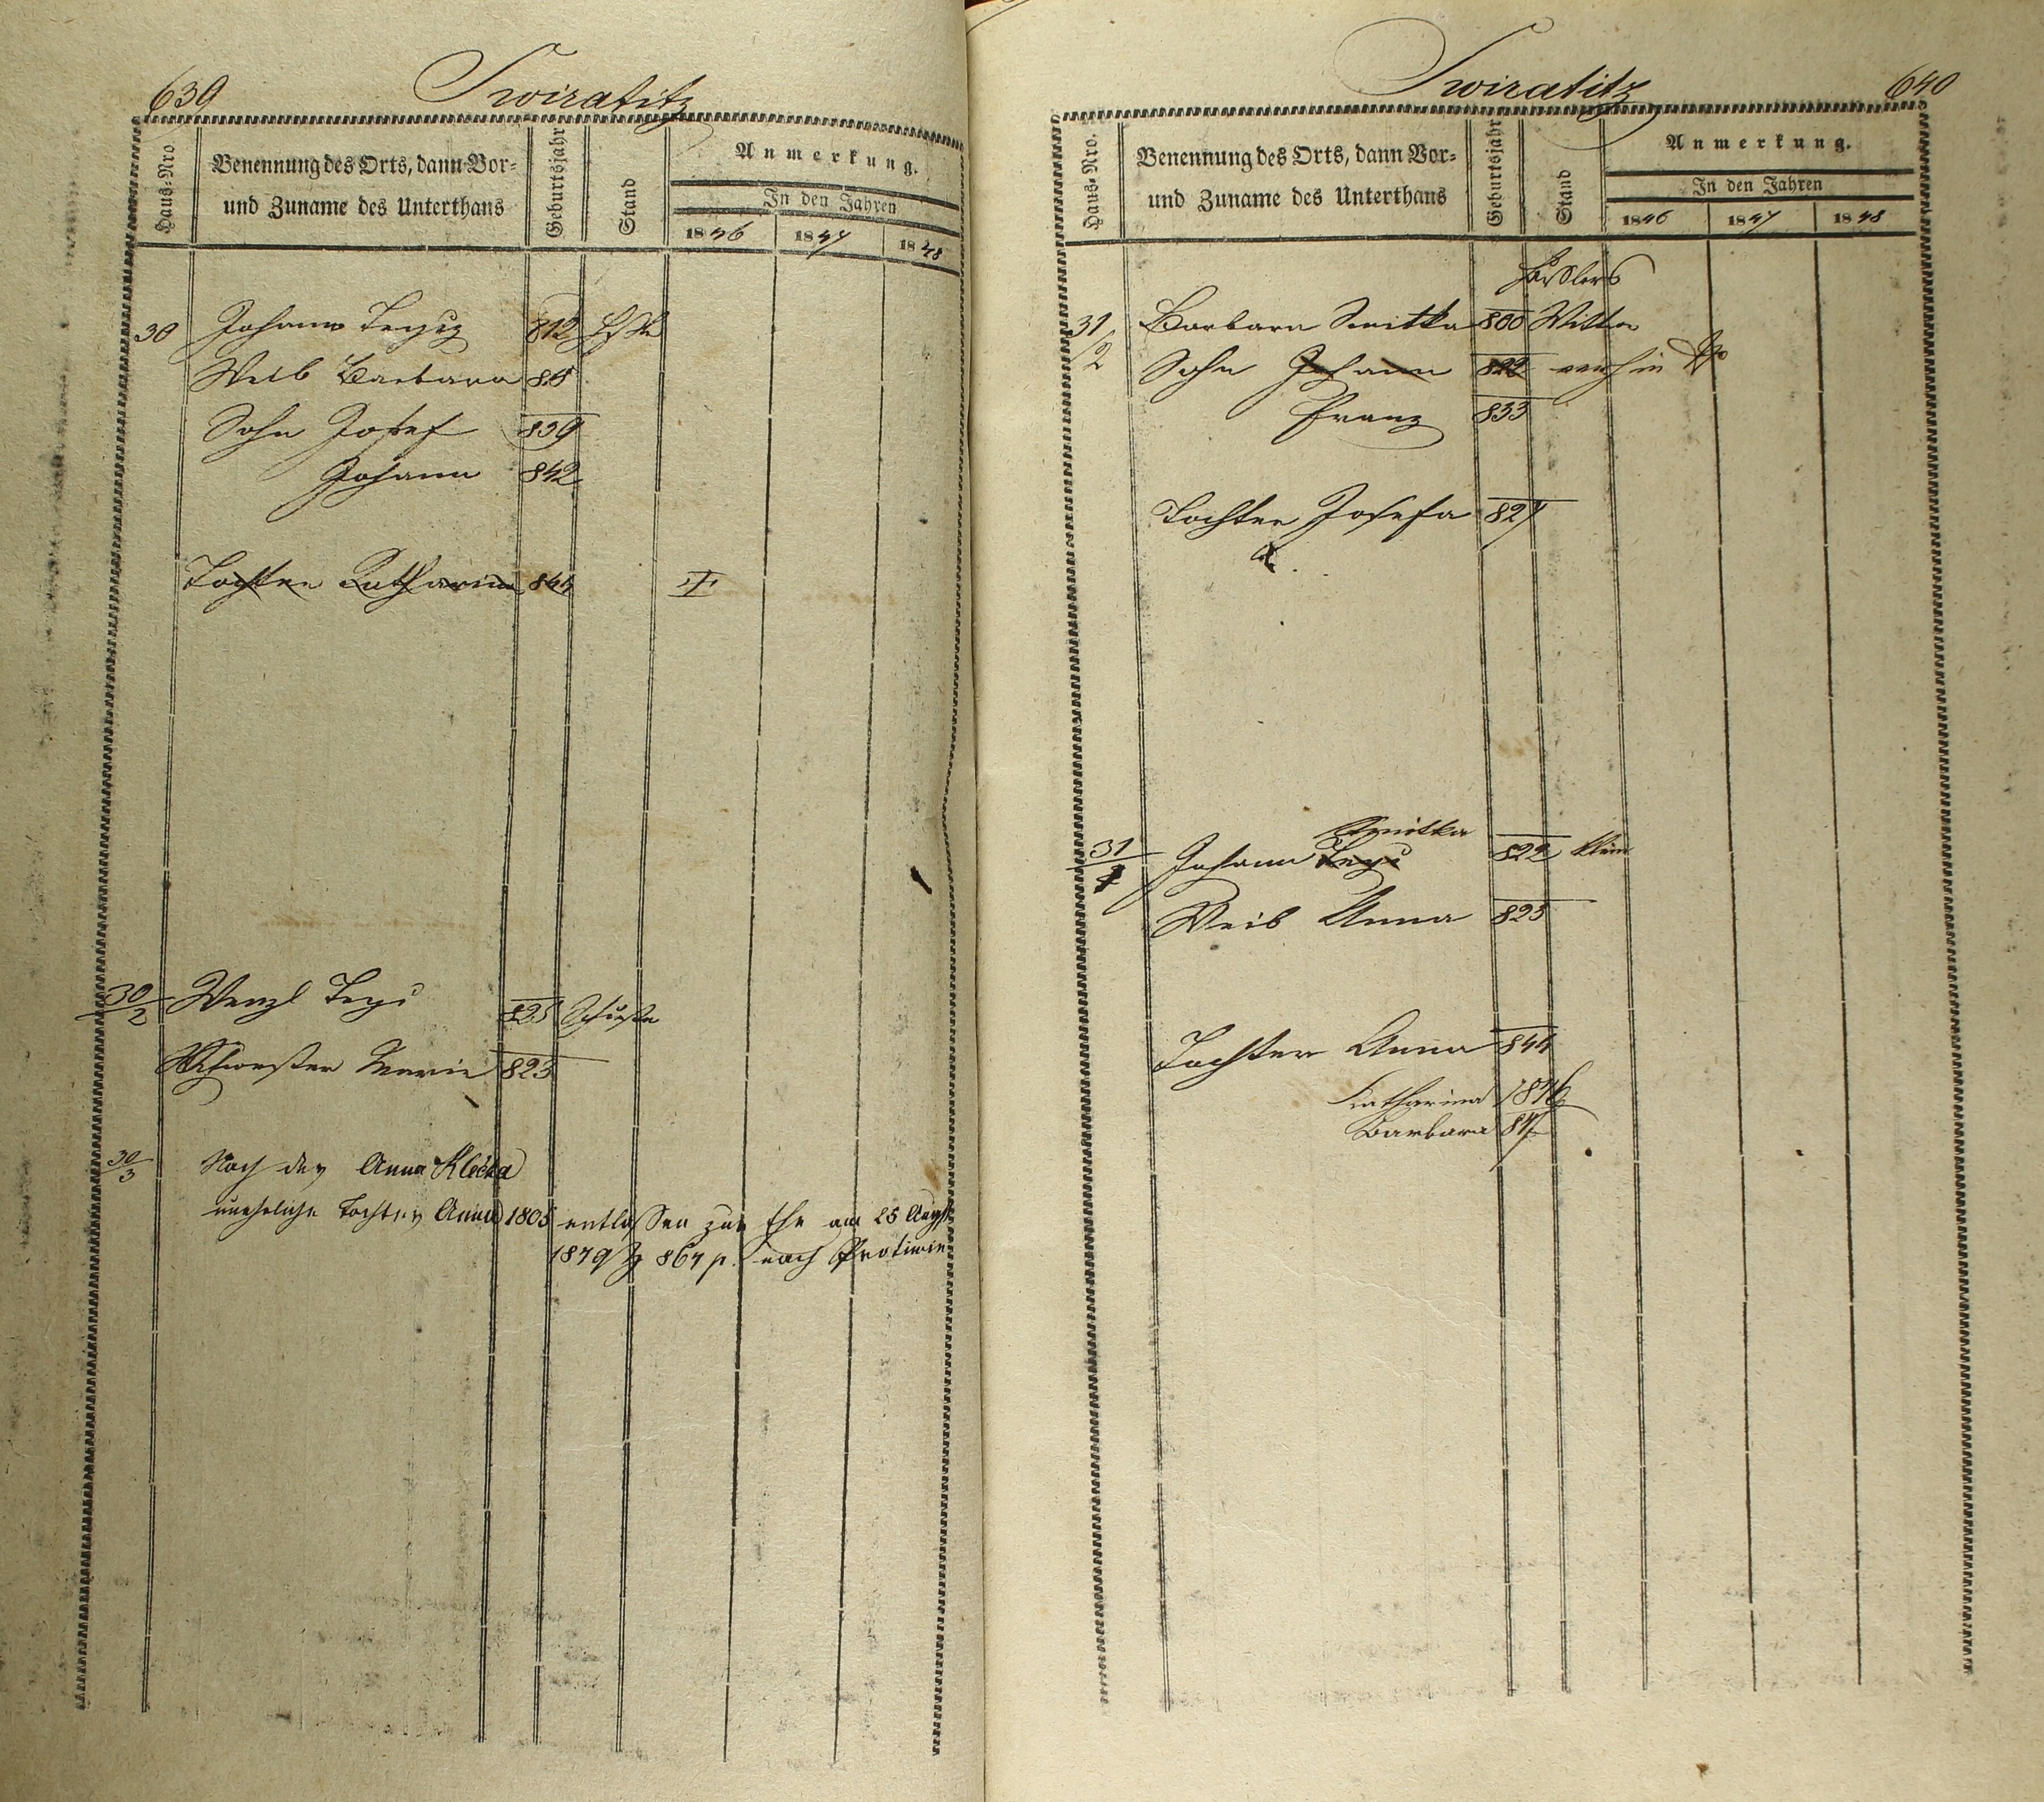 639
Twiratitz
Haus-Nro
Benennung des Orts, dann Vor-
und Zuname des Unterthans
Geburtsjahr
Stand
Anmerkung.
In den Jahren
1846 1847 1848
30 Johann 812
Weib Barbara
Sohn Josef 839
Johann 842
Tochter Katharina 844
30/2 Wenzl 825 Schuster
Schwester Marie 823
30/3 Nach der Anna Klečka
uneheliche Tochter Anna 1805 entlassen zur Ehe am 25 Augst
nach Protiwin
Twiratitz
640
Haus-Nro.
Benennung des Orts, dann Vor-
und Zuname des Unterthans
Geburtsjahr
Stand
Anmerkung.
In den Jahren
1846 1847 1848
Häuslers
31/2 Barbara Smitka 800 Wittwe
Sohn Johann 822
Franz 833
Tochter Josefa 827
Smitka
31 Johann 822
Weib Anna 823
Tochter Anna 844
Katharina 1846
Barbara 847